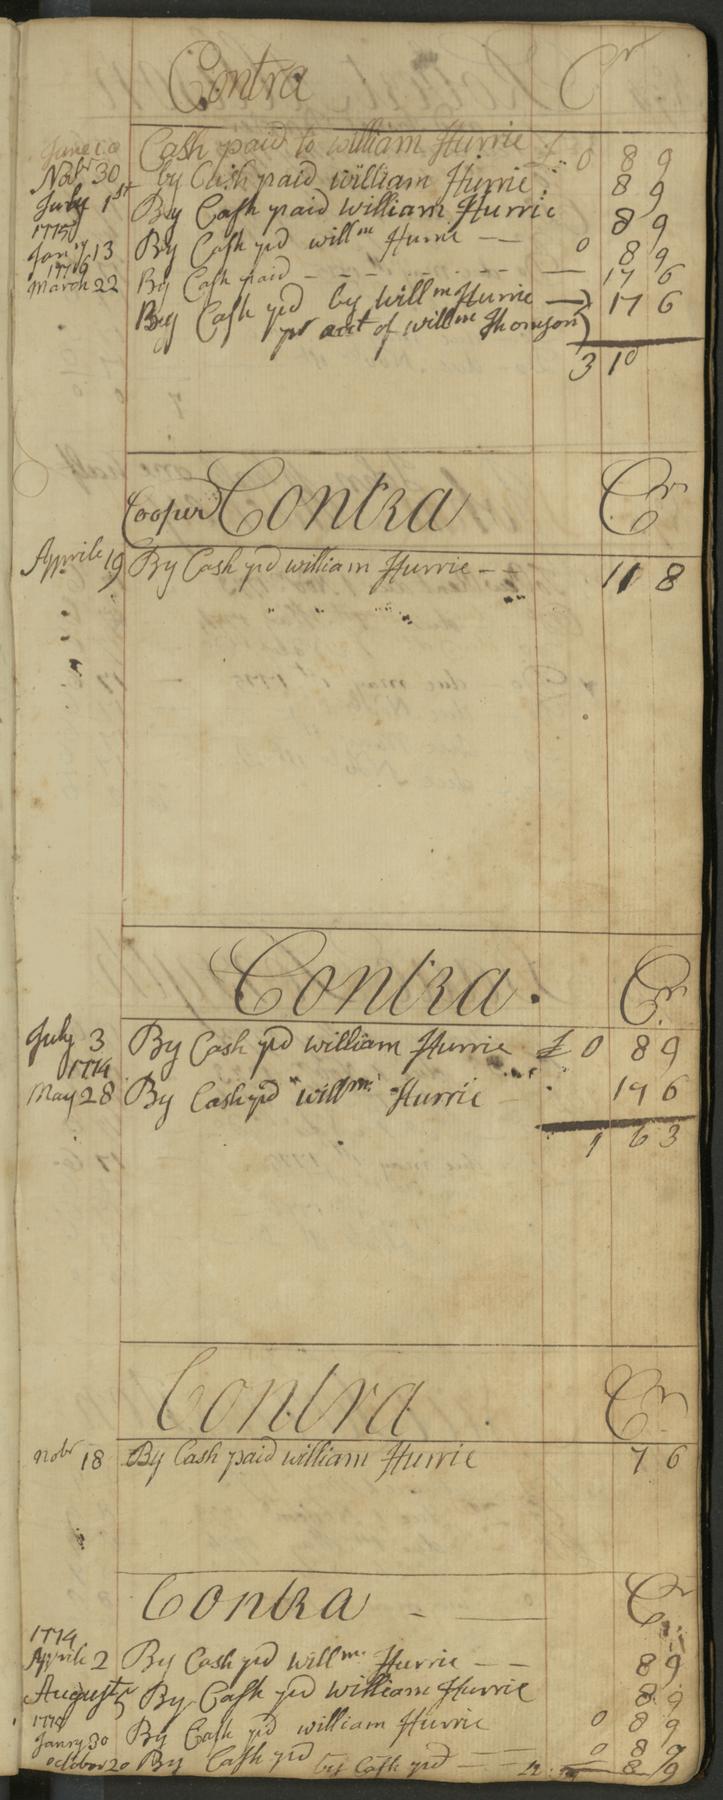 Contra Cr
June 10 Cash paid to william Hurrie £ 0 8 9
Nobr 30 by Cash paid william Hurrie 8 9
July 1st By Cash paid william Hurrie 8 9
1775
Janry 13 By Cash pd willm Hurrie 0 8 9
1776
March 22 By Cash paid 17 6
By Cash pd by willm Hurrie 17 6
pr act of willm Thomson
3 10
Cooper Contra Cr
Aprile 19 By Cash pd william Hurrie 11 8
Contra. Cr
July 3 By Cash pd william Hurrie £ 0 8 9
1774
May 28 By Cash pd willm Hurrie 17 6
1 6 3
Contra Cr
nobr 18 By Cash paid william Hurrie 7 6
Contra Cr
1774
Aprile 2 By Cash pd willm Hurrie 8 9
August 5 By Cash pd william Hurrie 8 9
Janry 30 By Cash pd william Hurrie 0 8 9
octobor 20 By Cash pd 0 8 9
by Cash pd 8 9